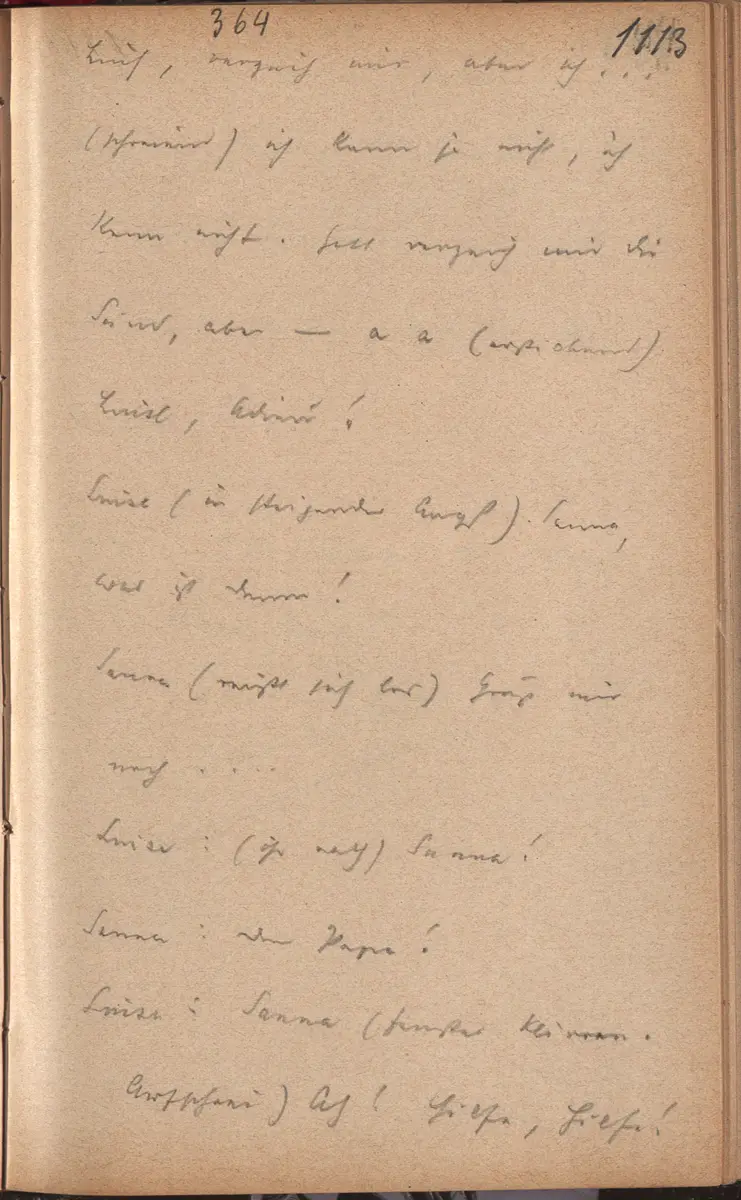 364
1113
Luise, verzeih mir, aber ich...
(schreiend) ich kann ja nicht, ich
kann nicht. Gott verzeih mir die
Sünd, aber — a a (erstickend)
Luise, Adieu!
Luise (in steigender Angst). Sanna,
was ist denn!
Sanna (reißt sich los) Grüß mir
noch ....
Luise: (ihr nach) Sanna!
Sanna: den Papa!
Luise: Sanna (Fenster Klirren.
Aufschrei) Ach! Hilfe, Hilfe!